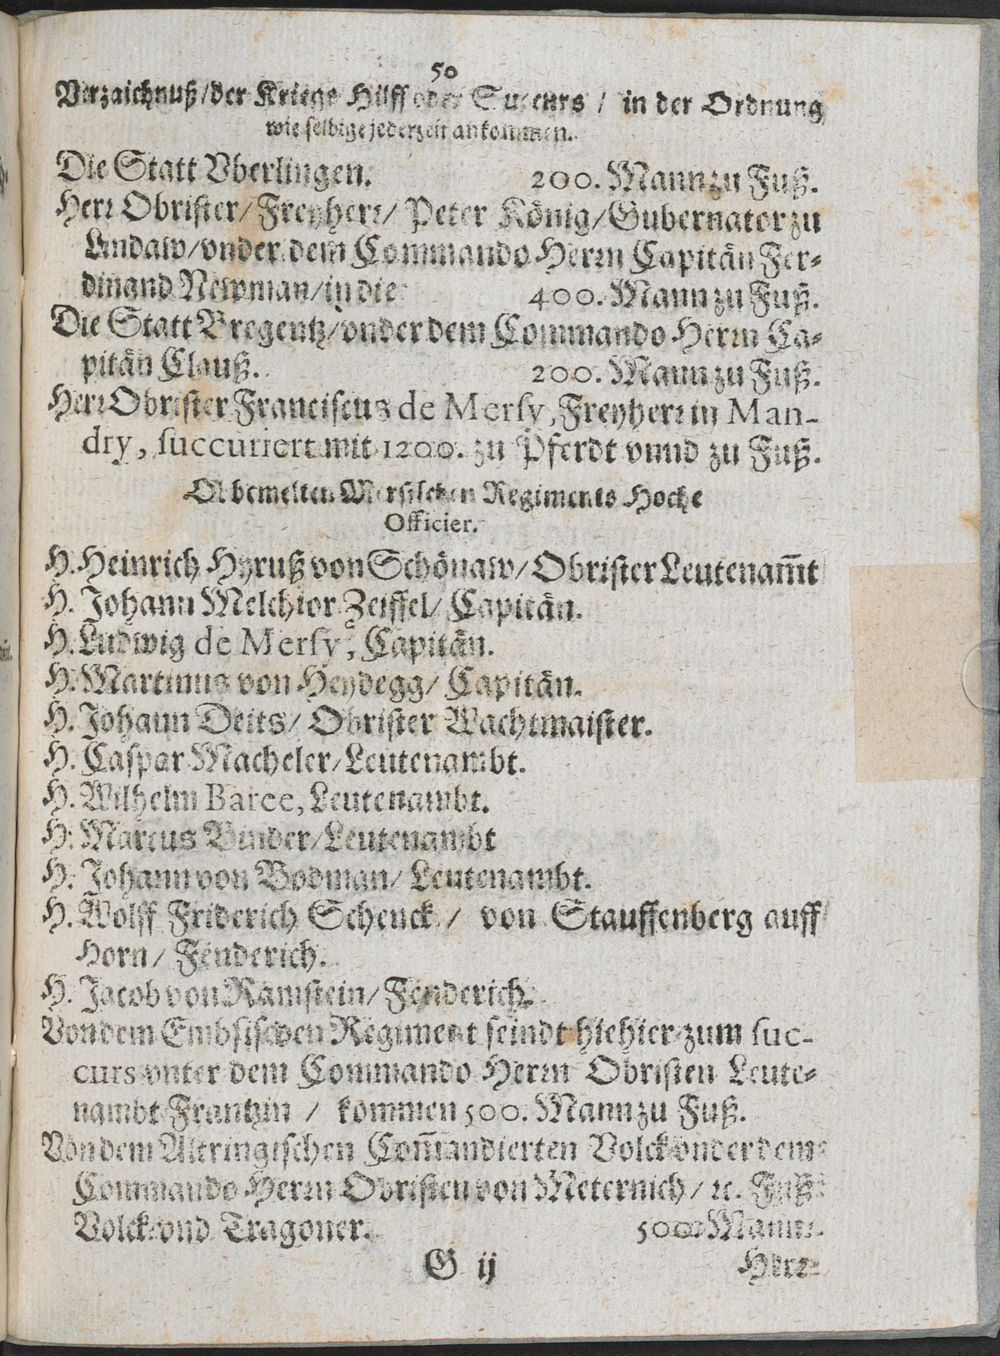 50
Verzaichnuß/der Kriegs Hilff oder Sucurs / in der Ordnung
wie selbige jederzeit ankommen.
Die Statt Vberlingen. 200. Mann zu Fuß.
Herr Obrister/Freyherr/ Peter König/Gubernator zu
Lindaw/vnder dem Commando Herrn Capitän Fer-
dinand Newman/in die 400. Mann zu Fuß.
Die Statt Bregentz/vnder dem Commando Herrn Ca-
pitän Clauß. 200. Mann zu Fuß.
Herr Obrister Franciscus de Mersy, Freyherr in Man-
dry, succuriert mit 1200. zu Pferdt vnnd zu Fuß.
Obbemelten Mersischen Regiments Hoche
Officier.
H. Heinrich Hyruß von Schönaw/Obrister Leutenam̃t
H. Johann Melchior Zeiffel/ Capitän.
H. Ludwig de Mersy, Capitän.
H. Martinus von Heydegg/ Capitän.
H. Johann Deits/ Obrister Wachtmaister.
H. Caspar Macheler/Leutenambt.
H. Wilhelm Baree, Leutenambt.
H. Marcus Binder/Leutenambt
H. Johann von Bodman/ Leutenambt.
H. Wolff Friderich Schenck / von Stauffenberg auff
Horn/ Fenderich.
H. Jacob von Ramstein/ Fenderich.
Von dem Embsischen Regiment seindt hiehier zum suc-
curs vnter dem Commando Herrn Obristen Leute-
nambt Frantzin / kommen 500. Mann zu Fuß.
Von dem Altringischen Com̃andierten Volck vnder dem
Commando Herrn Obristen von Meternich/ ꝛc. Fuß-
Volck vnd Tragoner. 500. Mann.
G ij Herr